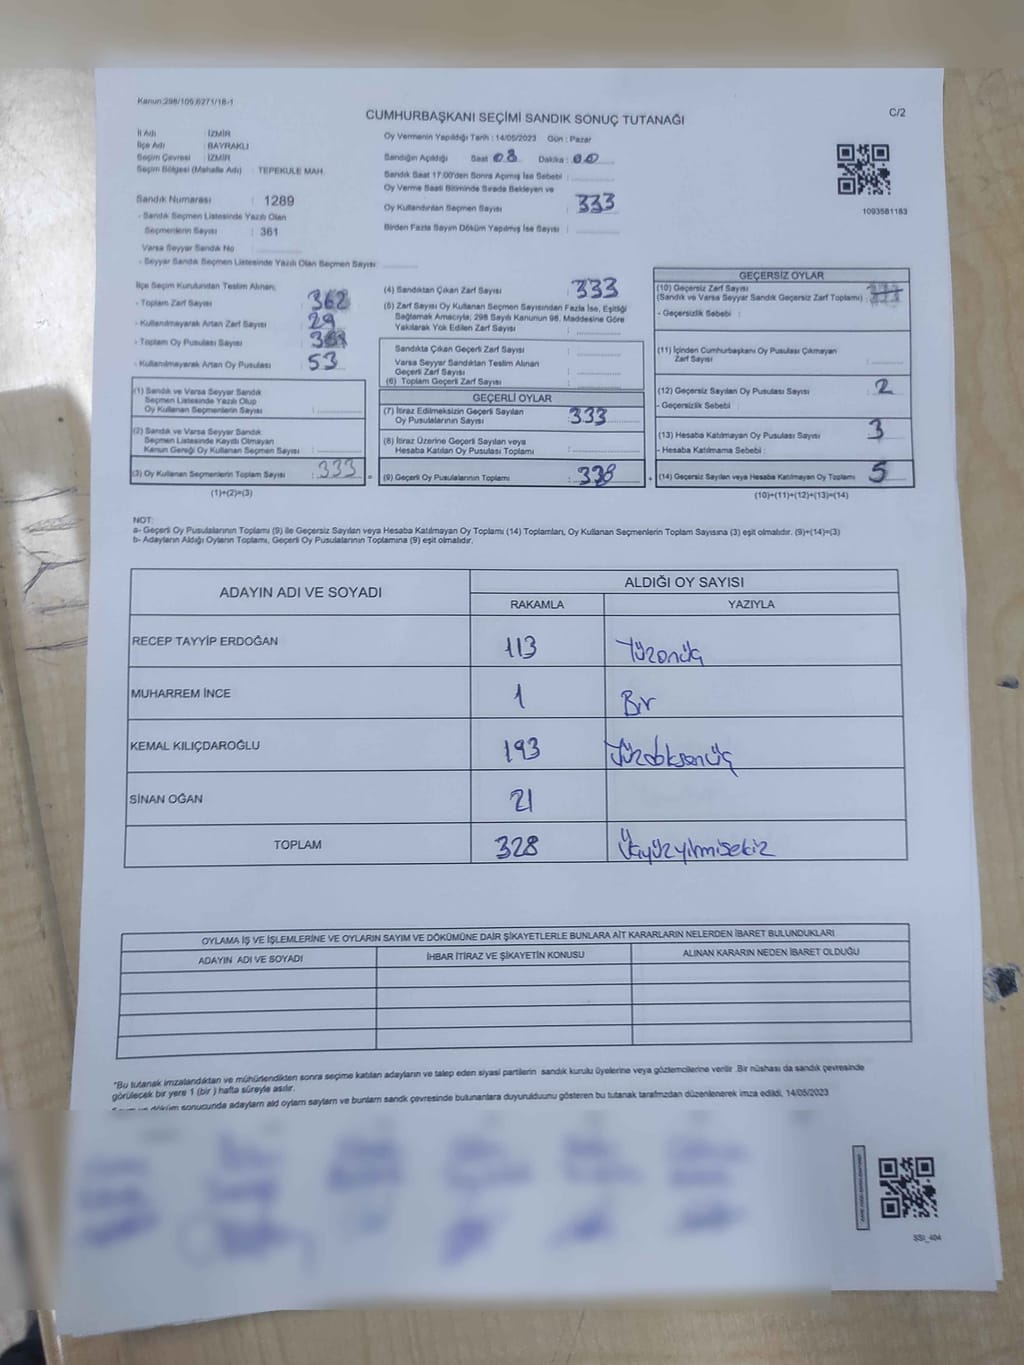 Kanun:298/109,6271/18-1
CUMHURBAŞKANI SEÇİMİ SANDIK SONUÇ TUTANAĞI
C/2
İl Adı : İZMİR
İlçe Adı : BAYRAKLI
Seçim Çevresi : İZMİR
Seçim Bölgesi (Mahalle Adı) : TEPEKULE MAH.
Sandık Numarası : 1289
- Sandık Seçmen Listesinde Yazılı Olan
Seçmenlerin Sayısı : 361
Varsa Seyyar Sandık No
- Seyyar Sandık Seçmen Listesinde Yazılı Olan Seçmen Sayısı:
Oy Vermenin Yapıldığı Tarih : 14/05/2023 Gün : Pazar
Sandığın Açıldığı Saat 08 Dakika : 00
Sandık Saat 17:00'den Sonra Açılmış İse Sebebi :
Oy Verme Saati Bitiminde Sırada Bekleyen ve
Oy Kullandırılan Seçmen Sayısı : 333
Birden Fazla Sayım Döküm Yapılmış İse Sayısı :
1093581183
İlçe Seçim Kurulundan Teslim Alınan;
- Toplam Zarf Sayısı : 362
- Kullanılmayarak Artan Zarf Sayısı : 29
- Toplam Oy Pusulası Sayısı :
- Kullanılmayarak Artan Oy Pusulası : 53
(1) Sandık ve Varsa Seyyar Sandık
Seçmen Listesinde Yazılı Olup
Oy Kullanan Seçmenlerin Sayısı :
(2) Sandık ve Varsa Seyyar Sandık
Seçmen Listesinde Kayıtlı Olmayan
Kanun Gereği Oy Kullanan Seçmen Sayısı :
(3) Oy Kullanan Seçmenlerin Toplam Sayısı : 333
(1)+(2)=(3)
(4) Sandıktan Çıkan Zarf Sayısı : 333
(5) Zarf Sayısı Oy Kullanan Seçmen Sayısından Fazla İse, Eşitliği
Sağlamak Amacıyla; 298 Sayılı Kanunun 98. Maddesine Göre
Yakılarak Yok Edilen Zarf Sayısı :
Sandıkta Çıkan Geçerli Zarf Sayısı :
Varsa Seyyar Sandıktan Teslim Alınan
Geçerli Zarf Sayısı :
(6) Toplam Geçerli Zarf Sayısı :
GEÇERLİ OYLAR
(7) İtiraz Edilmeksizin Geçerli Sayılan
Oy Pusulalarının Sayısı : 333
(8) İtiraz Üzerine Geçerli Sayılan veya
Hesaba Katılan Oy Pusulası Toplamı :
= (9) Geçerli Oy Pusulalarının Toplamı :
GEÇERSİZ OYLAR
(10) Geçersiz Zarf Sayısı
(Sandık ve Varsa Seyyar Sandık Geçersiz Zarf Toplamı) :
- Geçersizlik Sebebi :
(11) İçinden Cumhurbaşkanı Oy Pusulası Çıkmayan
Zarf Sayısı :
(12) Geçersiz Sayılan Oy Pusulası Sayısı : 2
- Geçersizlik Sebebi :
(13) Hesaba Katılmayan Oy Pusulası Sayısı : 3
- Hesaba Katılmama Sebebi :
+ (14) Geçersiz Sayılan veya Hesaba Katılmayan Oy Toplamı : 5
(10)+(11)+(12)+(13)=(14)
NOT:
a- Geçerli Oy Pusulalarının Toplamı (9) ile Geçersiz Sayılan veya Hesaba Katılmayan Oy Toplamı (14) Toplamları, Oy Kullanan Seçmenlerin Toplam Sayısına (3) eşit olmalıdır. (9)+(14)=(3)
b- Adayların Aldığı Oyların Toplamı, Geçerli Oy Pusulalarının Toplamına (9) eşit olmalıdır.
ADAYIN ADI VE SOYADI
ALDIĞI OY SAYISI
RAKAMLA YAZIYLA
RECEP TAYYİP ERDOĞAN 113 Yüzonüç
MUHARREM İNCE 1 Bir
KEMAL KILIÇDAROĞLU 193
SİNAN OĞAN 21
TOPLAM 328
OYLAMA İŞ VE İŞLEMLERİNE VE OYLARIN SAYIM VE DÖKÜMÜNE DAİR ŞİKAYETLERLE BUNLARA AİT KARARLARIN NELERDEN İBARET BULUNDUKLARI
ADAYIN ADI VE SOYADI İHBAR İTİRAZ VE ŞİKAYETİN KONUSU ALINAN KARARIN NEDEN İBARET OLDUĞU
*Bu tutanak imzalandıktan ve mühürlendikten sonra seçime katılan adayların ve talep eden siyasi partilerin sandık kurulu üyelerine veya gözlemcilerine verilir .Bir nüshası da sandık çevresinde
görülecek bir yere 1 (bir ) hafta süreyle asılır.
döküm sonucunda adayların ald oyların sayların ve bunların sandk çevresinde bulunanlara duyurulduunu gösteren bu tutanak tarafmzdan düzenlenerek imza edildi. 14/05/2023
SSI_404